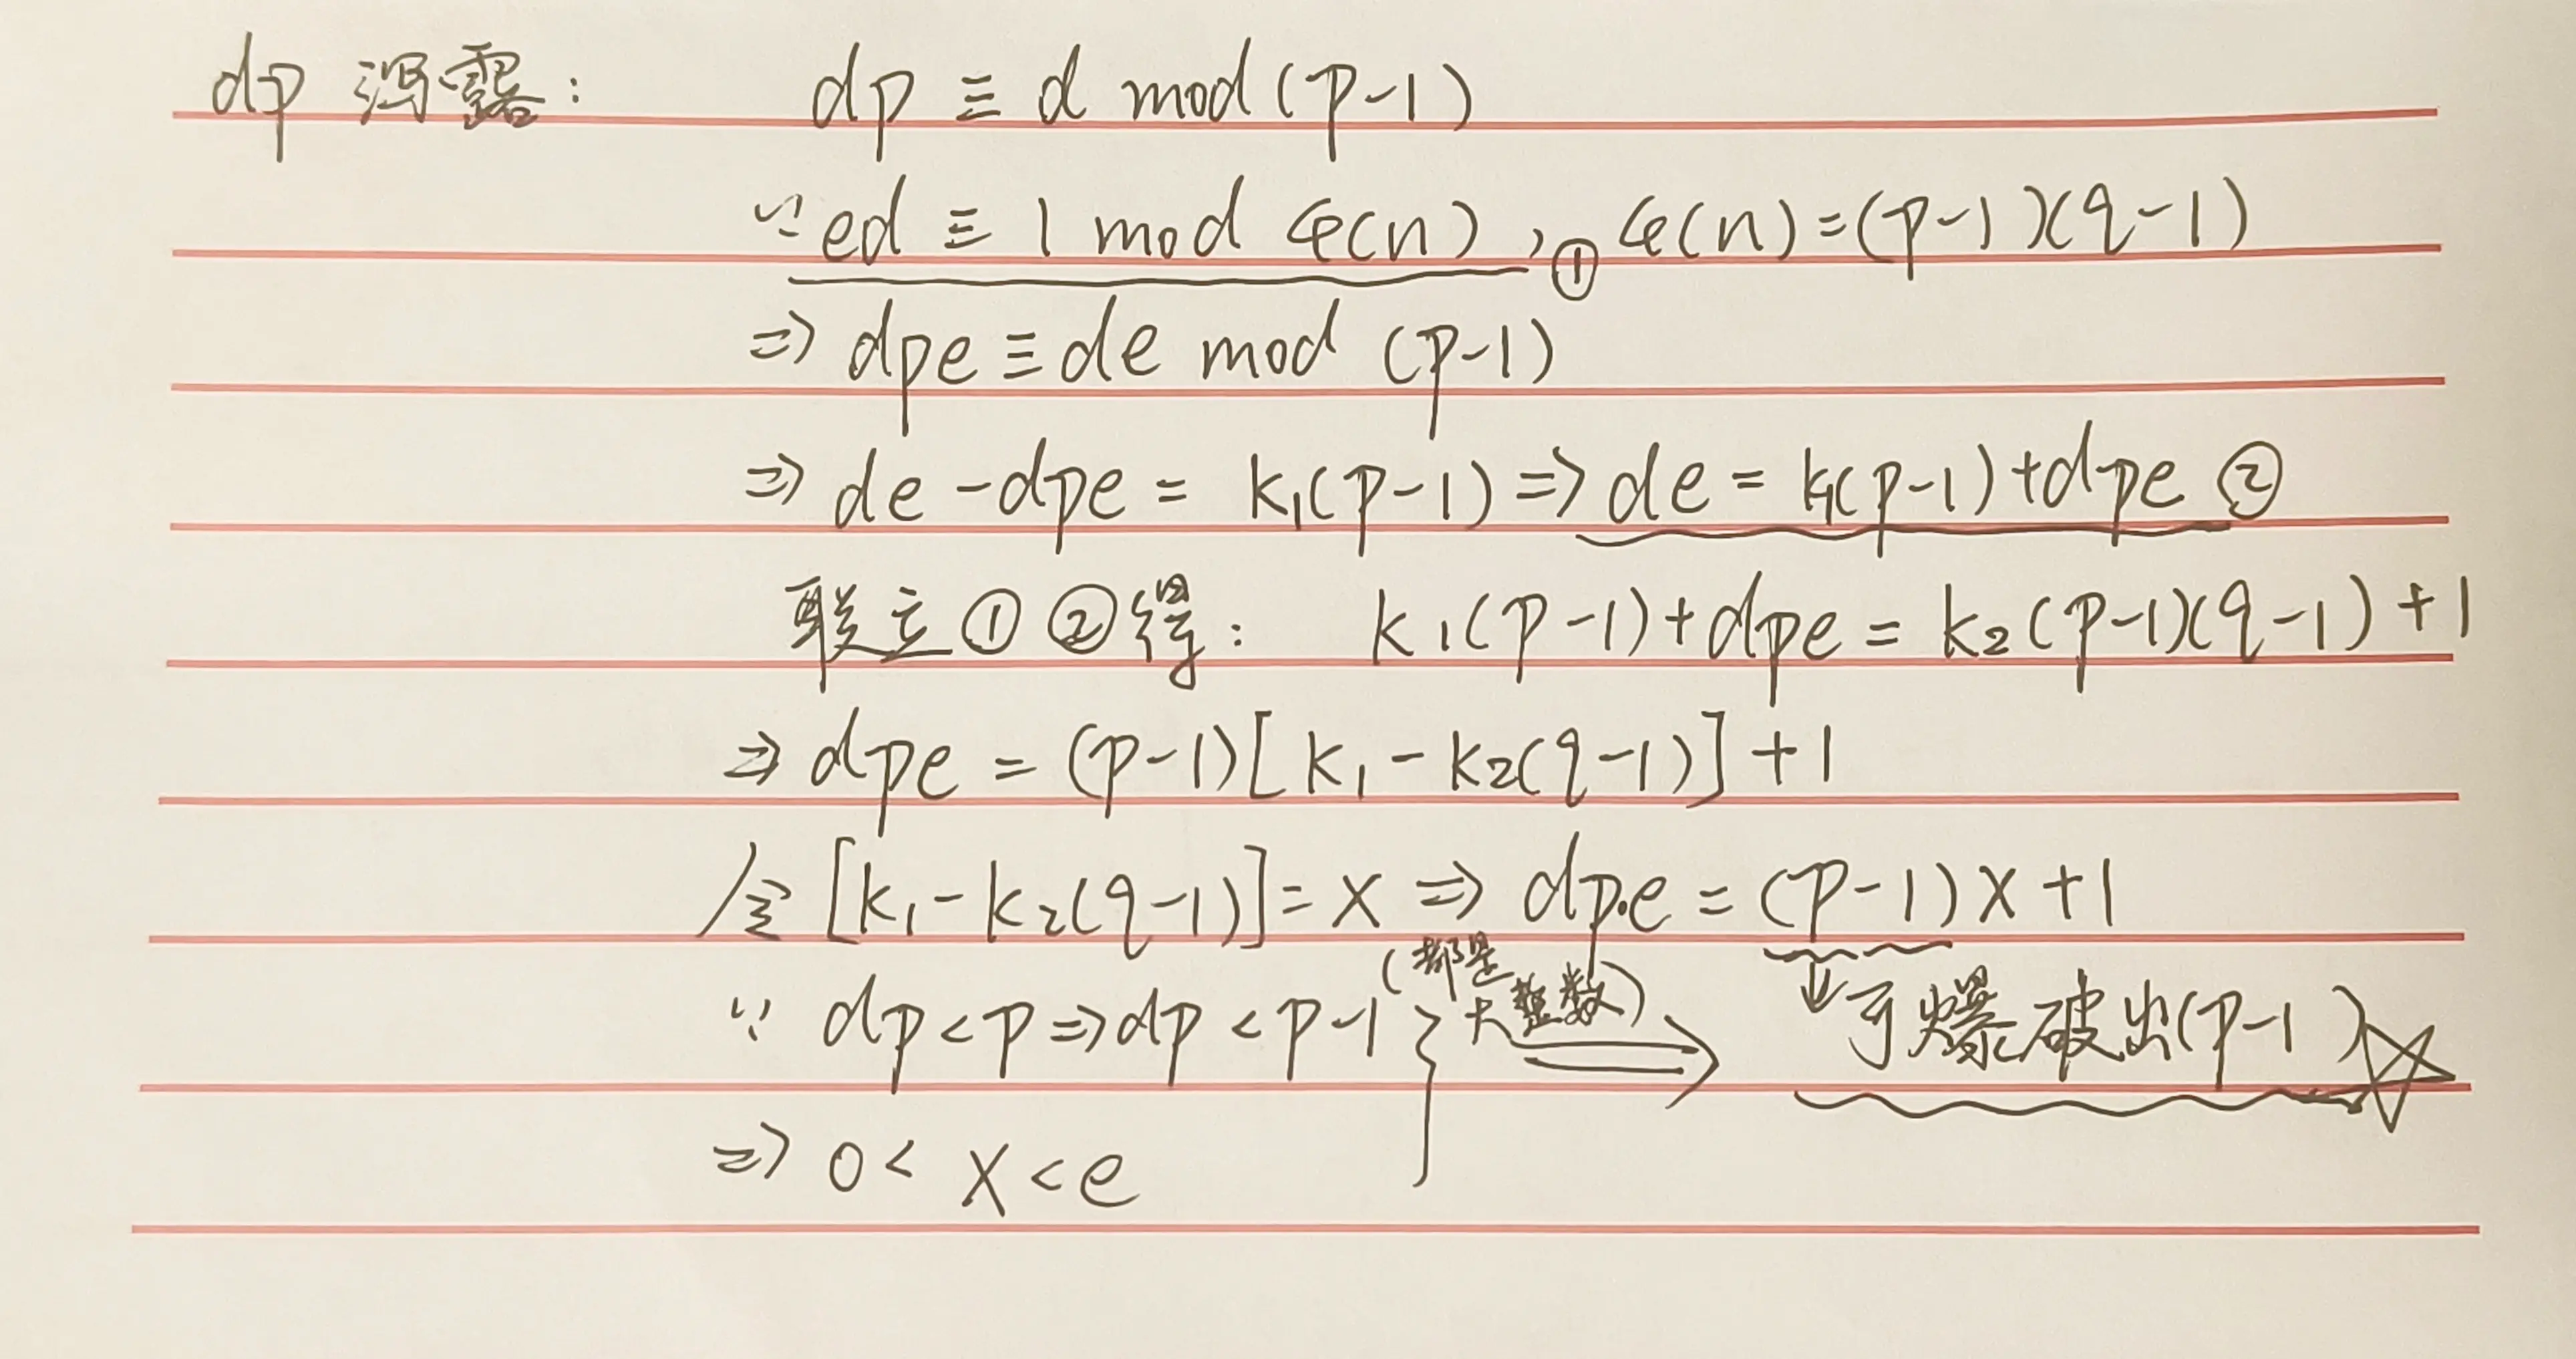 dp 泄露: dp ≡ d mod (p-1)
∵ ed ≡ 1 mod φ(n), ① φ(n)=(p-1)(q-1)
⇒ dpe ≡ de mod (p-1)
⇒ de - dpe = k₁(p-1) ⇒ de = k₁(p-1)+dpe ②
联立①②得: k₁(p-1)+dpe = k₂(p-1)(q-1)+1
⇒ dpe = (p-1)[k₁-k₂(q-1)]+1
令[k₁-k₂(q-1)]=X ⇒ dp·e = (p-1)X+1
∵ dp<p⇒dp<p-1 (都是大整数) ⇒ ↓可爆破出(p-1)☆
⇒ 0<X<e